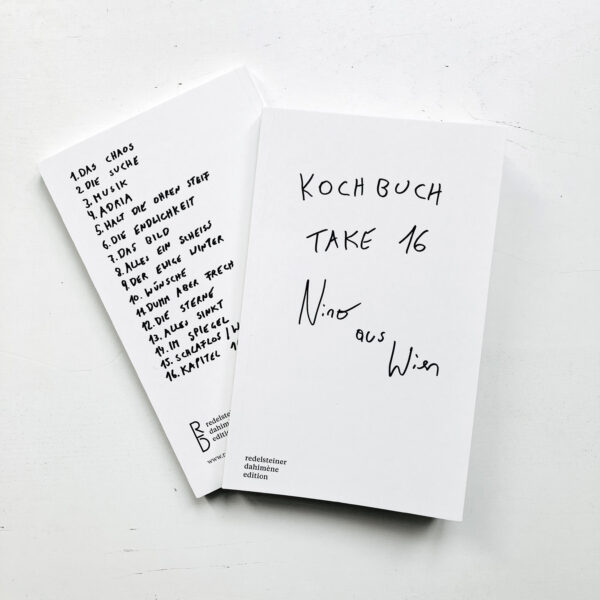 1. DAS CHAOS
2. DIE SUCHE
3. MUSIK
4. ADRIA
5. HALT DIE OHREN STEIF
6. DIE ENDLICHKEIT
7. DAS BILD
8. ALLES EIN SCHEISS
9. DER EWIGE WINTER
10. WÜNSCHE
11. DUMM ABER FRECH
12. DIE STERNE
13. ALLES SINKT
14. IM SPIEGEL
15. SCHLAFLOS/W
16. KAPITEL 1
RD
redelsteiner
dahimène
edition
www.r
KOCHBUCH
TAKE 16
Nino
aus
Wien
redelsteiner
dahimène
edition